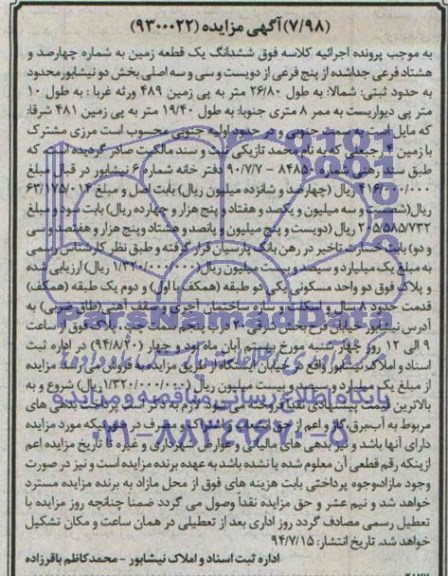 (۷/۹۸) آگهی مزایده (۹۳۰۰۰۲۲)
به موجب پرونده اجرائیه کلاسه فوق ششدانگ یک قطعه زمین به شماره چهارصد و
هشتاد فرعی جداشده از پنج فرعی از دویست و سی و سه اصلی بخش دو نیشابور محدود
به حدود ثبتی: شمالا: به طول ۲۶/۸۰ متر به پی زمین ۴۸۹ ورثه غربا: به طول ۱۰
متر پی دیواریست به ممر ۸ متری جنوبا: به طول ۱۹/۴۰ متر به پی زمین ۴۸۱ شرقا:
که مایل است به سمت جنوبی و در حدود اولیه جنوبی محسوب است مرزی مشترک
با زمین که به نام محمد تازیکی ثبت و سند مالکیت صادر گردیده است که
طبق سند رهنی شماره ۸۴۸۵۰ - ۹۰/۷/۷ دفتر خانه شماره ۶ نیشابور در قبال مبلغ
۴۱۶/۰۰۰/۰۰۰ ریال (چهارصد و شانزده میلیون ریال) بابت اصل و مبلغ ۶۳/۱۷۵/۰۱۴
ریال (شصت و سه میلیون و یکصد و هفتاد و پنج هزار و چهارده ریال) بابت سود و مبلغ
۲۰۵/۵۸۵/۷۳۲ ریال (دویست و پنج میلیون و پانصد و هشتاد وپنج هزار و هفتصد و سی
و دو) بابت خسارت تاخیر در رهن بانک پارسیان قرار گرفته و طبق نظر کارشناس رسمی
به مبلغ یک میلیارد و سیصد و بیست میلیون ریال (۱/۳۲۰/۰۰۰/۰۰۰ ریال) ارزیابی شده
و پلاک فوق دو واحد مسکونی یکی دو طبقه (همکف با اول) و دوم یک طبقه (همکف)
قدمت حدود ۸ سال و اسکلت و سازه ساختمان آجری و سقف آهنی (طاق ضربی) به
آدرس نیشابور خیابان پلاک فوق از ساعت
۹ الی ۱۲ روز چهارشنبه مورخ بیستم آبان ماه نود و چهار (۹۴/۸/۲۰) در اداره ثبت
اسناد و املاک نیشابور واقع در خیابان از طریق مزایده به فروش می رسد. مزایده
از مبلغ یک میلیارد و سیصد و بیست میلیون ریال (۱/۳۲۰/۰۰۰/۰۰۰ ریال) شروع و به
بالاترین قیمت پیشنهادی نقدا فروخته می شود. لازم به ذکر است پرداخت بدهی های
مربوط به آب، برق، گاز و اعم از حق انشعاب و یا اشتراک و مصرف در صورتیکه مورد مزایده
دارای آنها باشد و نیز بدهی های مالیاتی و عوارض شهرداری و غیره تا تاریخ مزایده اعم
از اینکه رقم قطعی آن معلوم شده یا نشده باشد به عهده برنده مزایده است و نیز در صورت
وجود مازاد، وجوه پرداختی بابت هزینه های فوق از محل مازاد به برنده مزایده مسترد
خواهد شد و نیم عشر و حق مزایده نقداً وصول می گردد ضمنا چنانچه روز مزایده با
تعطیل رسمی مصادف گردد روز اداری بعد از تعطیلی در همان ساعت و مکان تشکیل
خواهد شد. تاریخ انتشار: ۹۴/۷/۱۵
اداره ثبت اسناد و املاک نیشابور - محمدکاظم باقرزاده
ParsNamadData
پایگاه اطلاع رسانی مناقصه و مزایده
۰۲۱-۸۸۳۴۹۶۷۰-۵